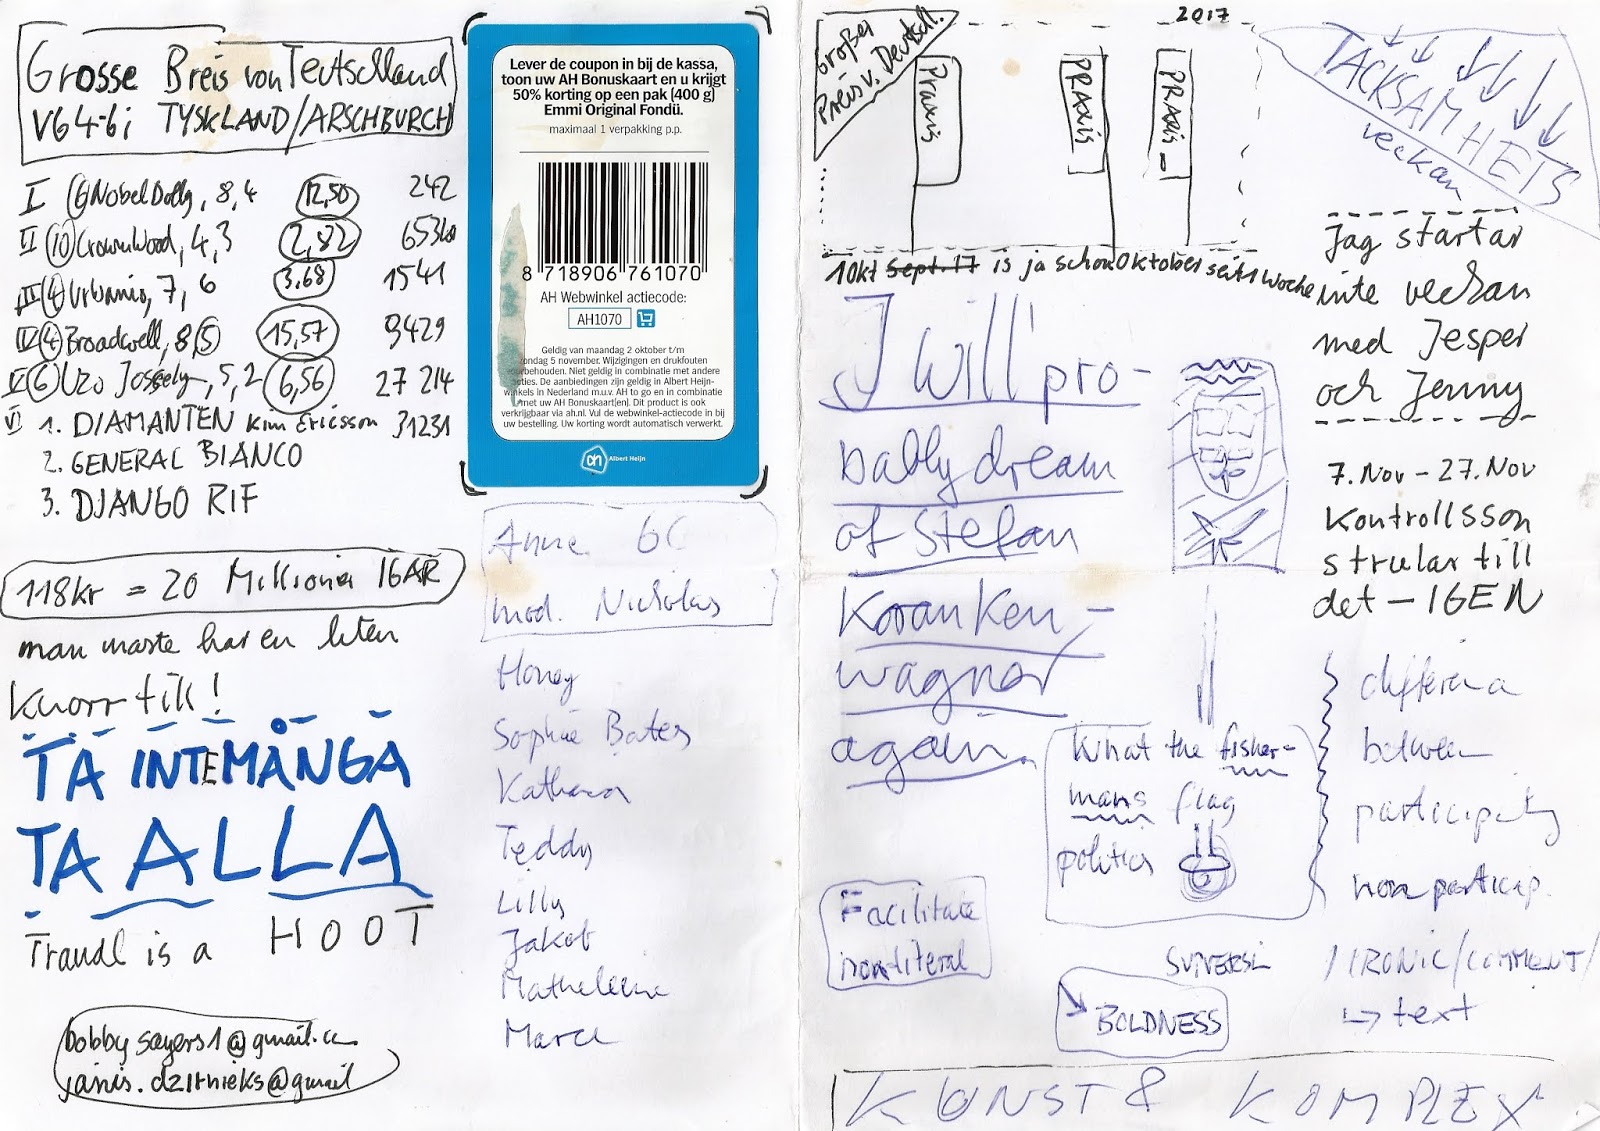 Grosse Breis von Teutschland
V64-6; TYSKLAND/ARSCHBURCH
I 6 Nobel Dolly, 8, 4 12,50 242
II 10 CrownWood, 4, 3 2,82
III 4 Urbanio, 7, 6 3,68 1541
IV 4 Broadwell, 8 5 15,57 9429
V 6 Uzo Josselyn, 5, 2 6,56 27 214
VI 1. DIAMANTEN Kim Ericsson 31231
2. GENERAL BIANCO
3. DJANGO RIF
118kr = 20 Millioner IGÅR
man maste har en liten
Knorr tik!
TA INTE MÅNGA
TA ALLA
Traudl is a HOOT
bobbysayers1@gmail.co
janis.dzirnieks@gmail
Lever de coupon in bij de kassa,
toon uw AH Bonuskaart en u krijgt
50% korting op een pak (400 g)
Emmi Original Fondü.
maximaal 1 verpakking p.p.
8 718906 761070
AH Webwinkel actiecode:
AH1070
Geldig van maandag 2 oktober t/m
zondag 5 november. Wijzigingen en drukfouten
voorbehouden. Niet geldig in combinatie met andere
acties. De aanbiedingen zijn geldig in Albert Heijn-
winkels in Nederland m.u.v. AH to go en in combinatie
met uw AH Bonuskaart(en). Dit product is ook
verkrijgbaar via ah.nl. Vul de webwinkel-actiecode in bij
uw bestelling. Uw korting wordt automatisch verwerkt.
ah Albert Heijn
Anne 6C
mod. Nicholas
Honey
Sophie Bates
Katharina
Teddy
Lilly
Jakob
Matheleine
Marce
Großer
Preis v. Deutschl.
2017
Praxis
PRAXIS
PRAXIS
10kt Sept. 17 is ja schon Oktober seit 1 Woche
I will pro-
bably dream
of Stefan
Koranken-
wagner
again.
What the fisher-
mans flag
politics
Facilitate
nonliteral
SUVERSI
BOLDNESS
KUNST & KOMPLEX
TACKSAMHETS
veckan
Jag startar
inte veckan
med Jesper
och Jenny
7. Nov – 27. Nov
Kontrollsson
strular till
det – IGEN
between
participity
non particip.
/IRONIC/COMMENT/
↳ text